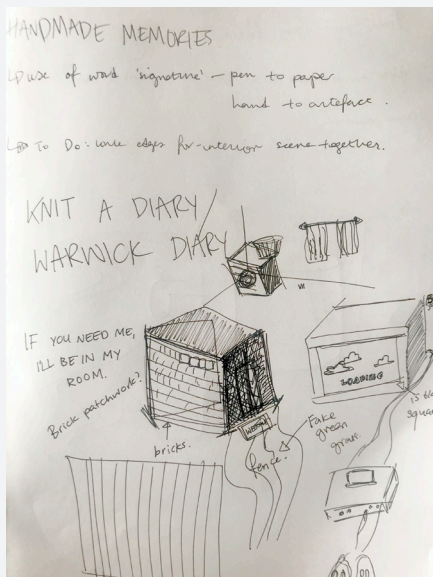 HANDMADE MEMORIES
use of word 'signature' – pen to paper
hand to artefact.
To Do: edges for interior scene together.
KNIT A DIARY/
WARWICK DIARY
IF YOU NEED ME,
I'LL BE IN MY
ROOM.
Brick patchwork?
bricks.
fence.
Fake
green
grass.
LOADING
is the